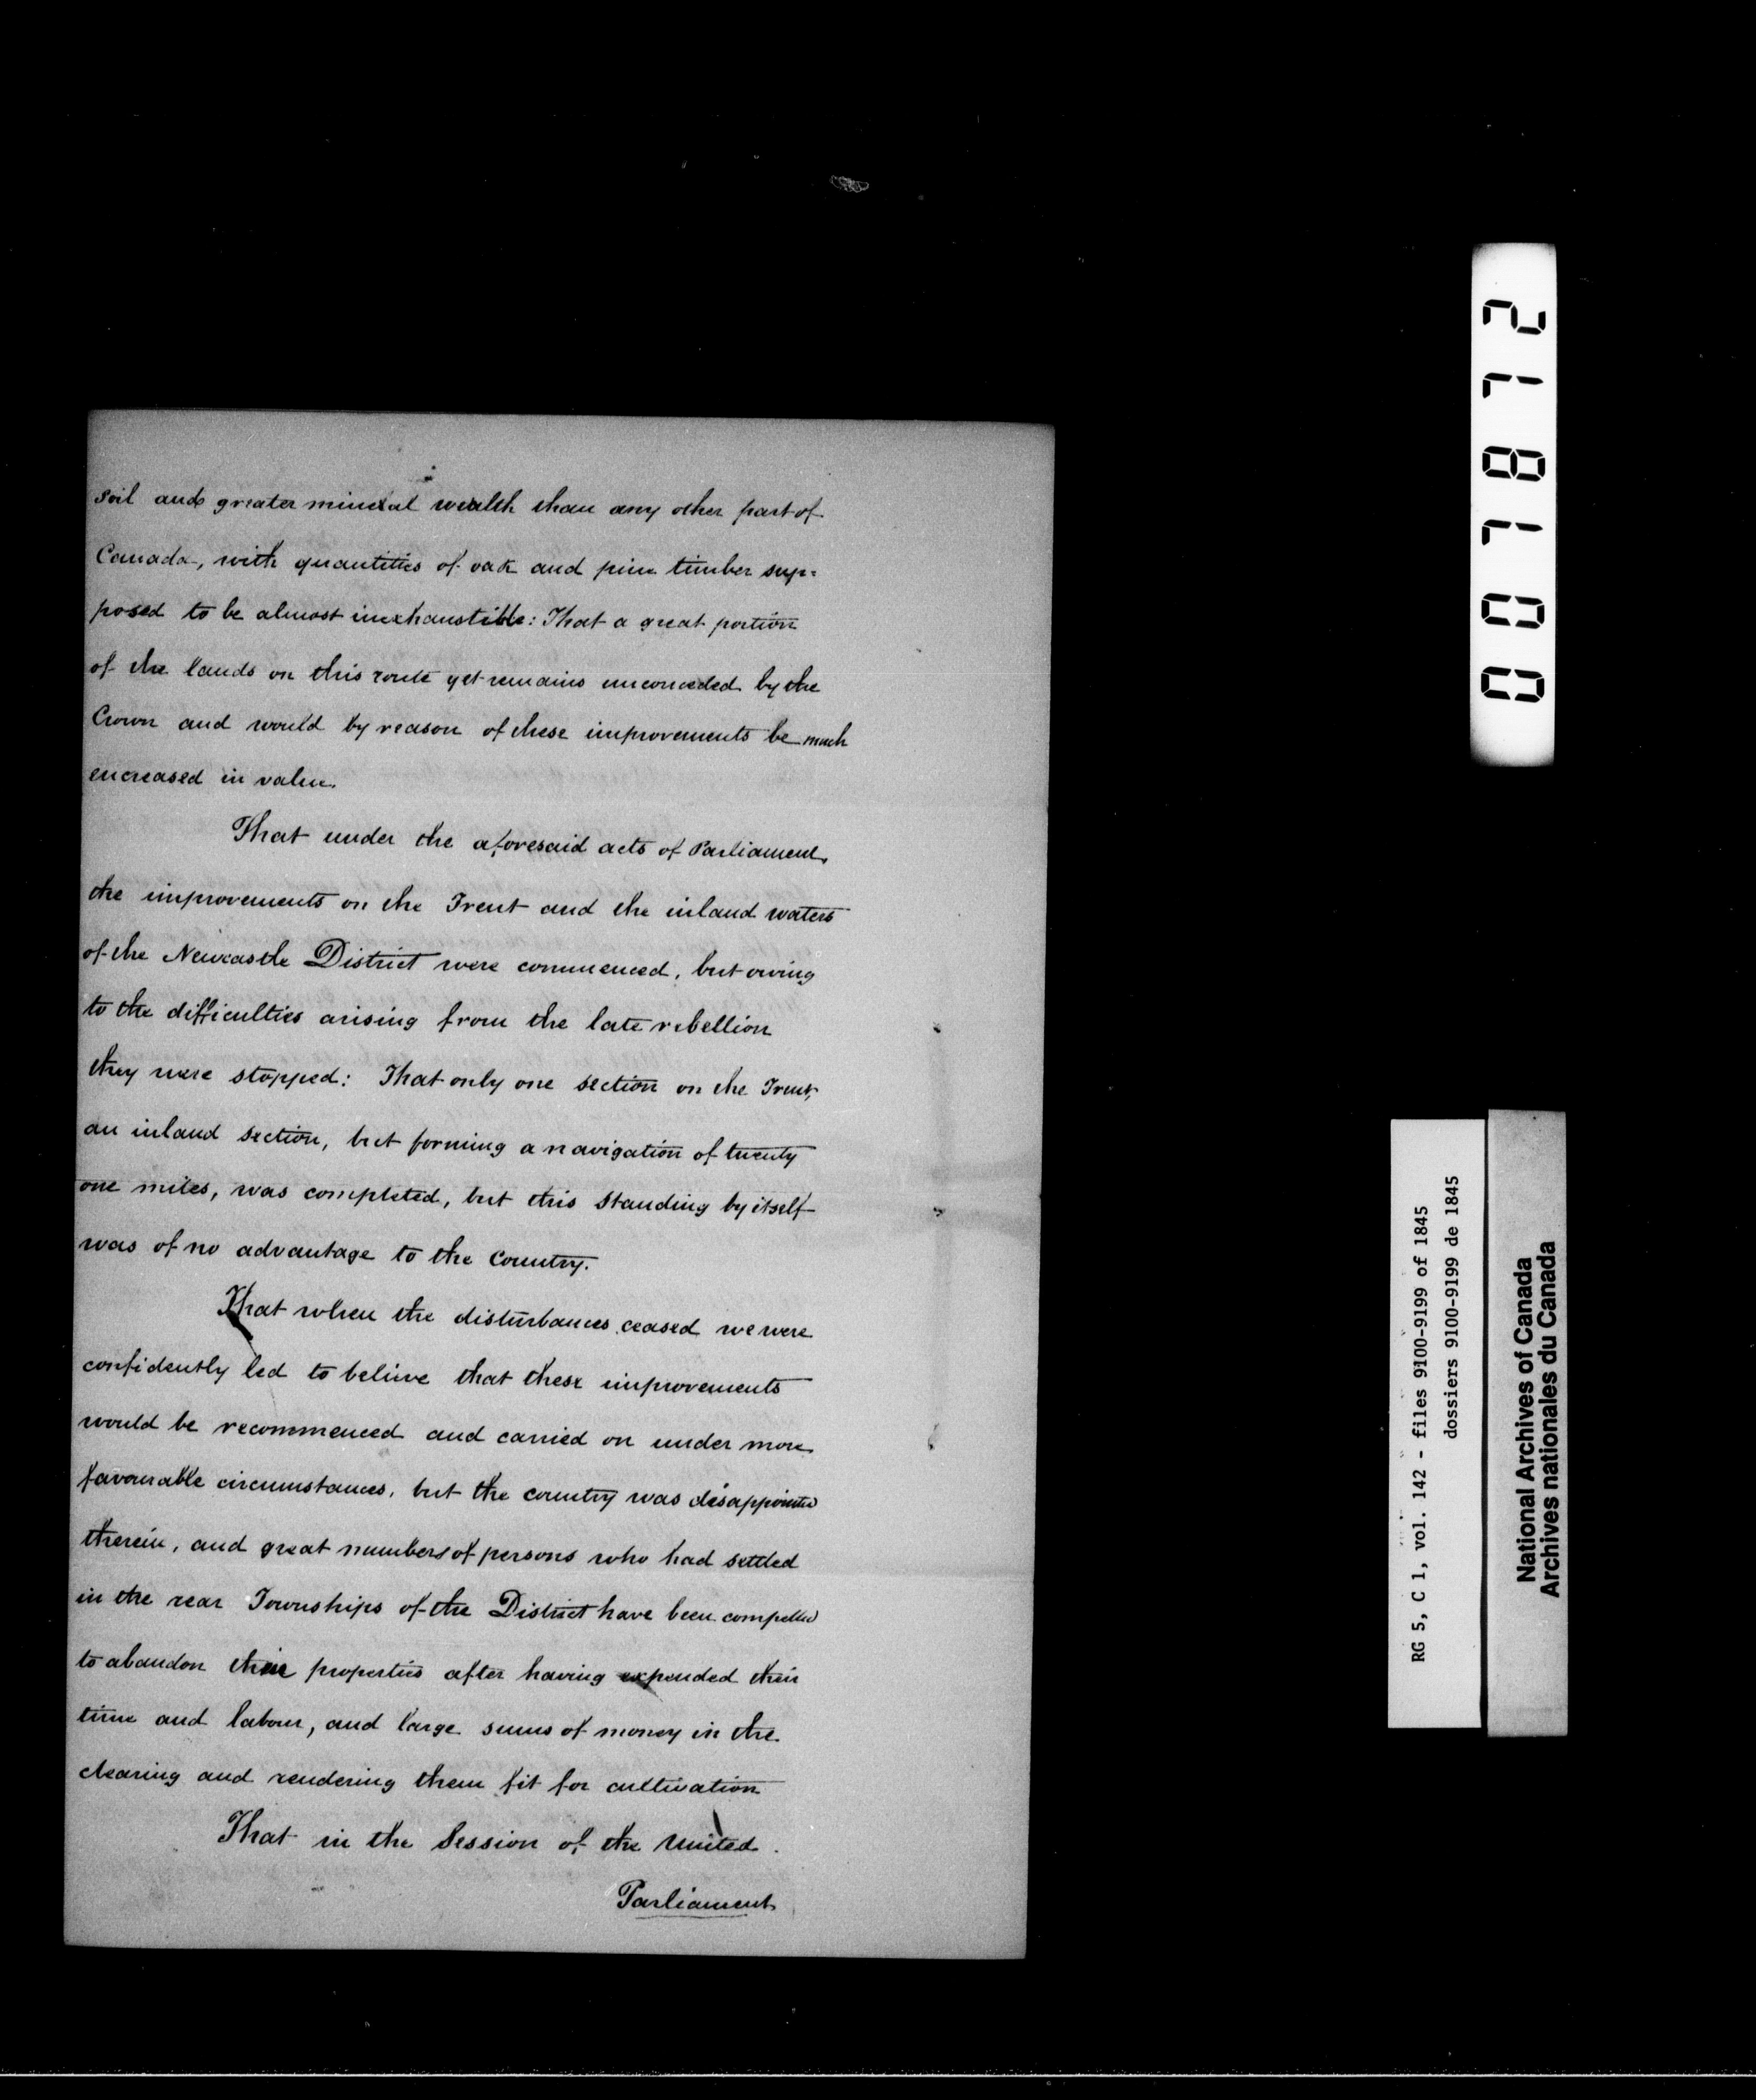 soil and greater mineral wealth than any other part of
Canada, with quantities of oak and pine timber sup=
posed to be almost inexhaustible: That a great portion
of the lands on this route yet remains unconceded by the
Crown and would by reason of these improvements be much
encreased in value.
That under the aforesaid acts of Parliament,
the improvements on the Trent and the inland waters
of the Newcastle District were commenced, but owing
to the difficulties arising from the late rebellion
they were stopped: That only one section on the Trent,
an inland section, but forming a navigation of twenty
one miles, was completed, but this standing by itself
was of no advantage to the Country.
That when the disturbances ceased we were
confidently led to believe that these improvements
would be recommenced and carried on under more
favourable circumstances, but the country was disappointed
therein, and great numbers of persons who had settled
in the rear Townships of the District have been compelled
to abandon their properties after having expended their
time and labour, and large sums of money in the
clearing and rendering them fit for cultivation
That in the Session of the United
Parliament
007872
RG 5, C 1, vol. 142 - files 9100-9199 of 1845
dossiers 9100-9199 de 1845
National Archives of Canada
Archives nationales du Canada